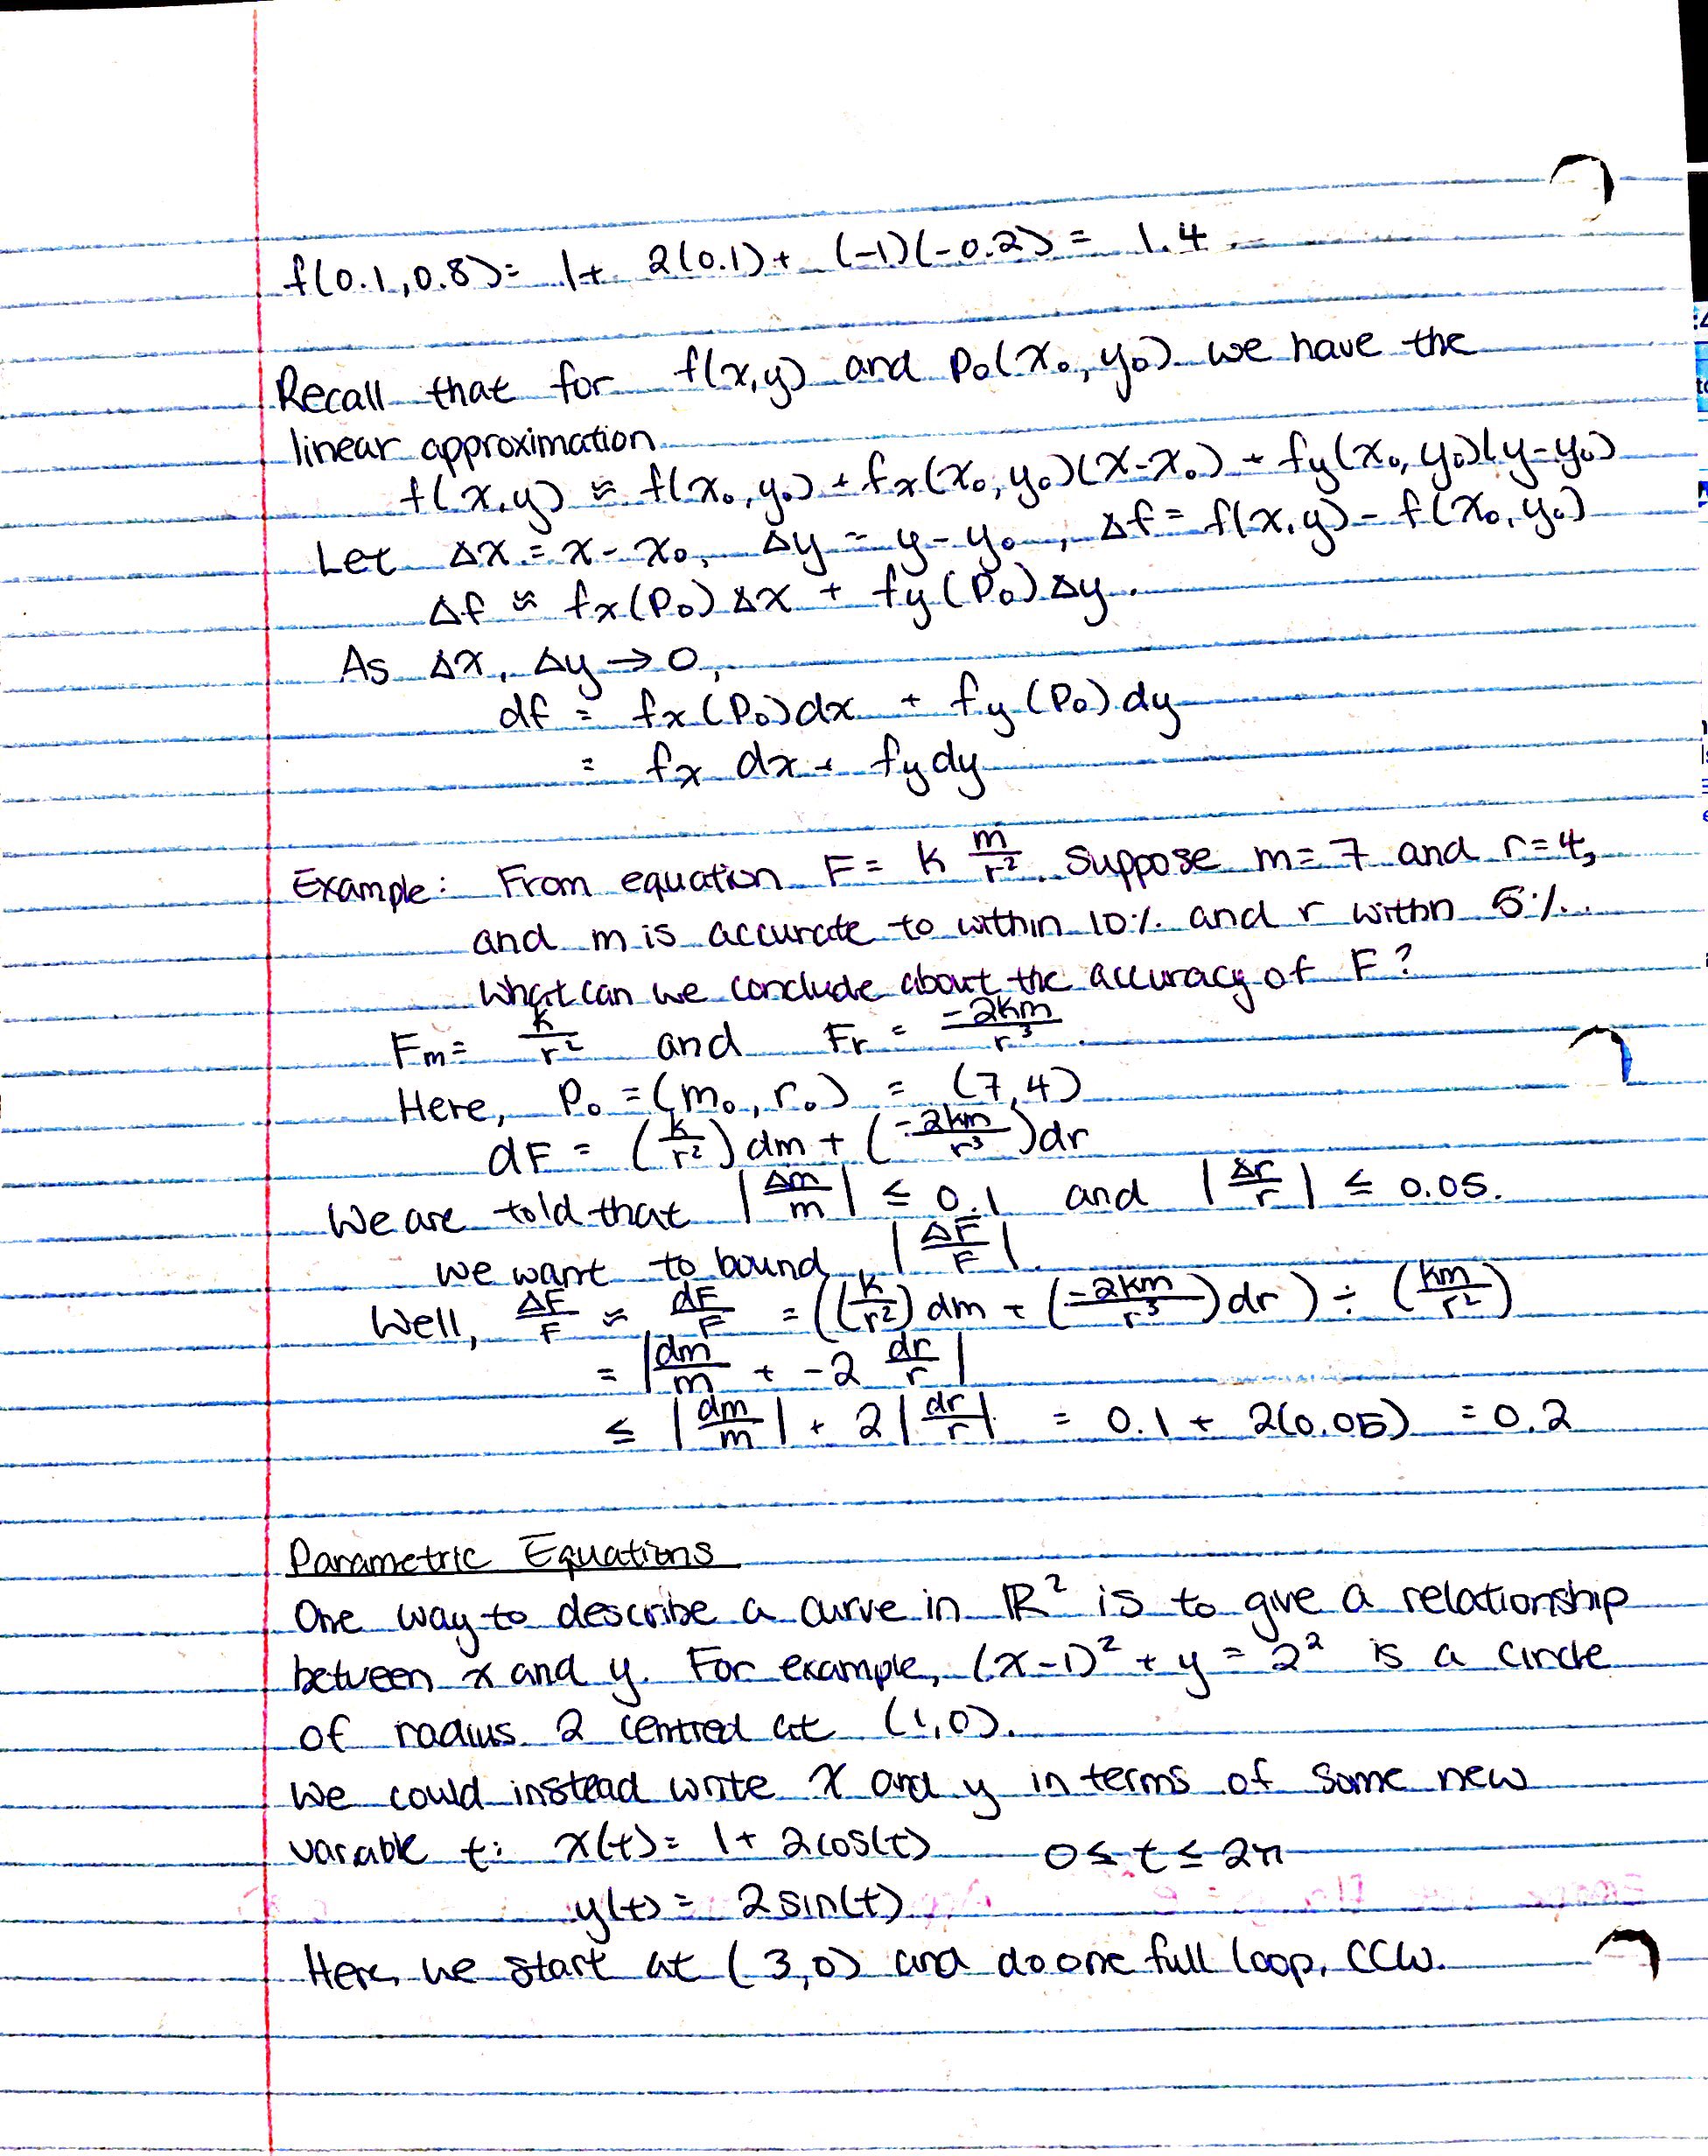 f(0.1,0.8) = 1 + 2(0.1) + (-1)(-0.2) = 1.4
Recall that for f(x,y) and P₀(x₀, y₀) we have the
linear approximation
f(x,y) ≈ f(x₀,y₀) + fx(x₀,y₀)(x-x₀) + fy(x₀,y₀)(y-y₀)
Let Δx = x - x₀, Δy = y - y₀, Δf = f(x,y) - f(x₀,y₀)
Δf ≈ fx(P₀) Δx + fy(P₀) Δy.
As Δx, Δy → 0,
df = fx(P₀)dx + fy(P₀)dy
= fx dx + fy dy
Example: From equation F = k m/r². Suppose m=7 and r=4,
and m is accurate to within 10% and r withn 5%.
What can we conclude about the accuracy of F?
Fm = k/r² and Fr = -2km/r³.
Here, P₀ = (m₀, r₀) = (7,4)
dF = (k/r²) dm + (-2km/r³)dr
We are told that |Δm/m| ≤ 0.1 and |Δr/r| ≤ 0.05.
We want to bound |ΔF/F|.
Well, ΔF/F ≈ dF/F = ((k/r²) dm + (-2km/r³)dr) ÷ (km/r²)
= |dm/m + -2 dr/r|
≤ |dm/m| + 2|dr/r| = 0.1 + 2(0.05) = 0.2
Parametric Equations
One way to describe a curve in ℝ² is to give a relationship
between x and y. For example, (x-1)² + y = 2² is a circle
of radius 2 centred at (1,0).
We could instead write x and y in terms of some new
variable t: x(t) = 1 + 2cos(t) 0 ≤ t ≤ 2π
y(t) = 2sin(t)
Here, we start at (3,0) and do one full loop, CCW.